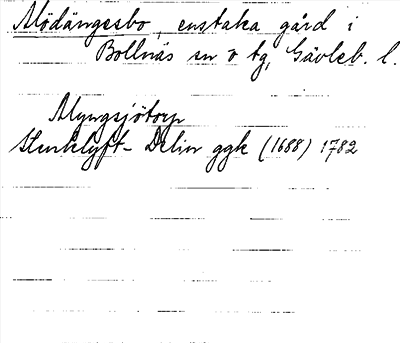 Mödängesbo, enstaka gård i
Bollnäs sn o tg, Gävleb. l.
Myngsjötorp
Stenklyft- Delin ggk (1688) 1782